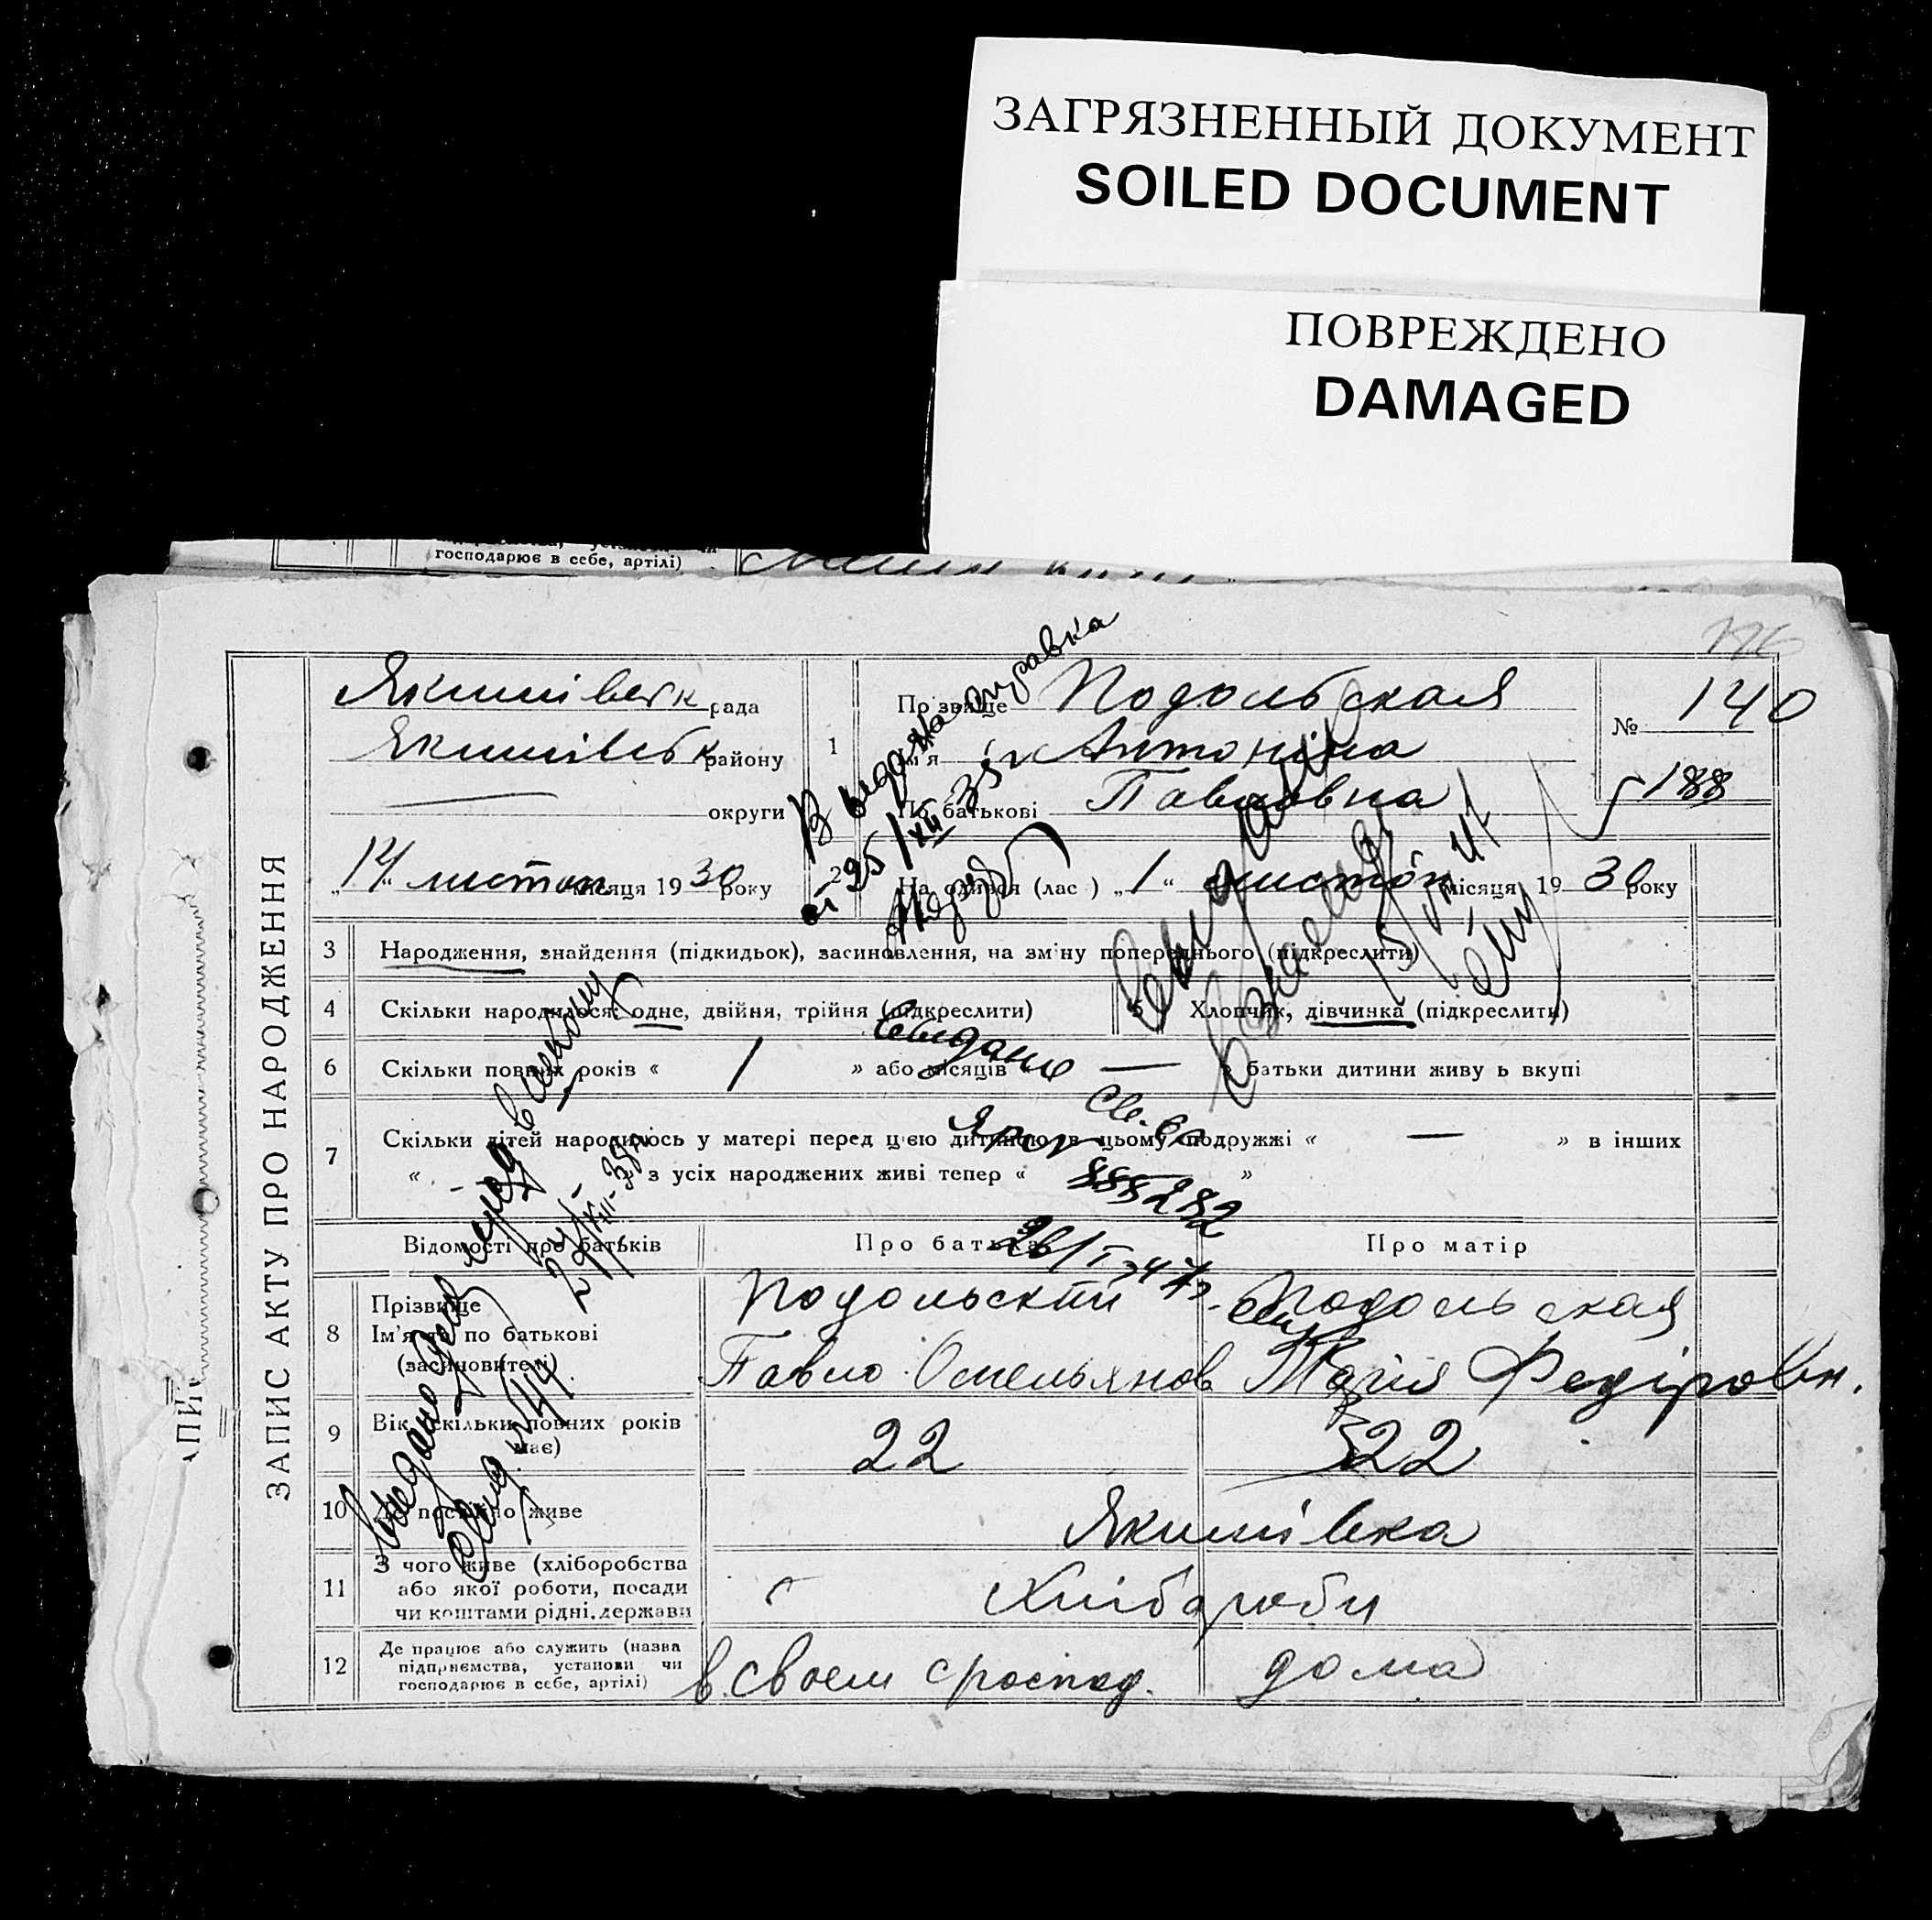 ЗАГРЯЗНЕННЫЙ ДОКУМЕНТ
SOILED DOCUMENT
ПОВРЕЖДЕНО
DAMAGED
господарює в себе, артілі)
176
ЗАПИС АКТУ ПРО НАРОДЖЕННЯ
Якимівськ рада
Якимівськ району
округи
1
Прізвище Подольская
Ім'я Антоніна
По батькові Павловна
№ 140
188
"14" листоп місяця 1930 року
2
Народився (лас ) „1“ листоп місяця 1930 року
3 Народження, знайдення (підкидьок), засиновлення, на зміну попереднього (підкреслити)
4 Скільки народилося: одне, двійня, трійня (підкреслити)
5 Хлопчик, дівчинка (підкреслити)
6 Скільки повних років « 1 » або місяців « — » батьки дитини живуть вкупі
7 Скільки дітей народилось у матері перед цією дитиною в цьому подружжі « — » в інших
« - з усіх народжених живі тепер « »
Відомості про батьків
Про батька
Про матір
8 Прізвище
Ім'я та по батькові
(засиновителі)
Подольскти
Павло Омельянов
Подольская
Марія Федіровн.
9 Вік (скільки повних років
має)
22
22
10 Де постійно живе
Якимівка
11 З чого живе (хліборобства
або якої роботи, посади
чи коштами рідні, держави
Хлібороби
12 Де працює або служить (назва
підприємства, установи чи
господарює в себе, артілі)
в своем господ.
дома
видана справка
25/XII 35 г
Видано
св. во
888282
26/I-47